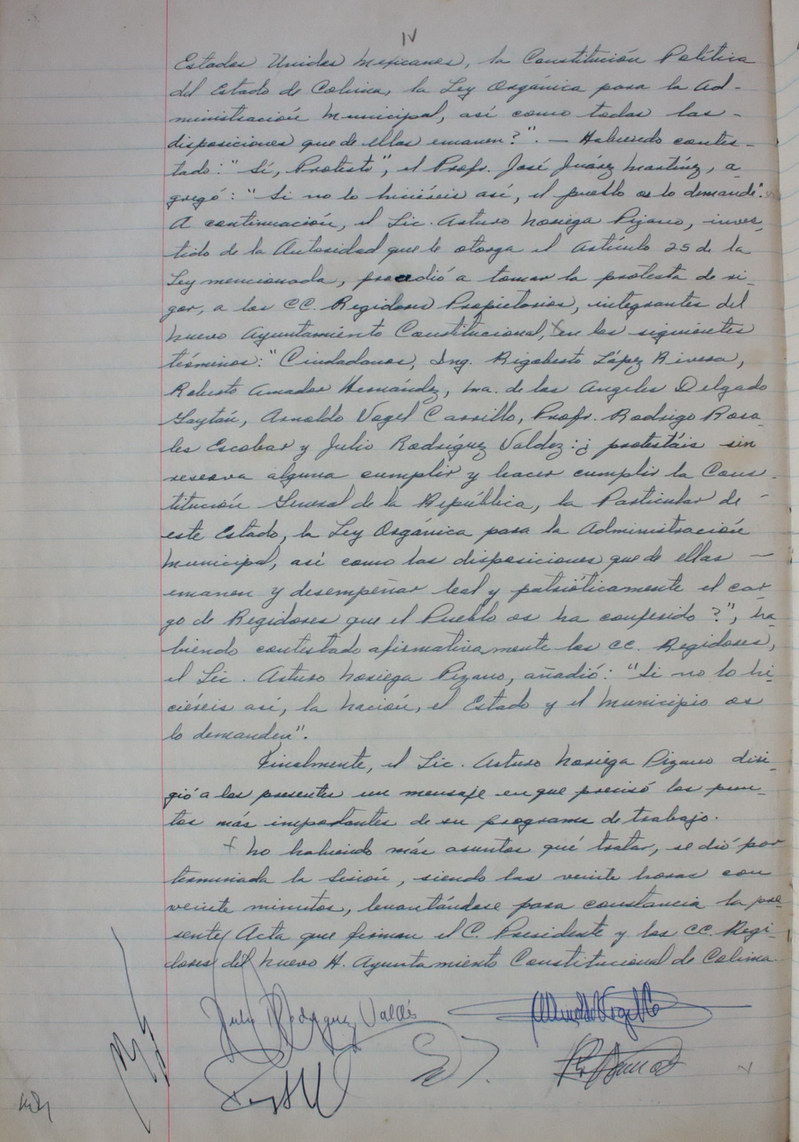 IV
Estados Unidos Mexicanos, la Constitución Política
del Estado de Colima, la Ley Orgánica para la Ad-
ministración Municipal, así como todas las-
disposiciones que de ellas emanen?". — Habiendo contes-
tado: "Sí, Protesto", el Profr. José Juárez Martínez, a-
gregó: "Si no lo hiciéreis así, el pueblo os lo demande".
A continuación, el Lic. Arturo Noriega Pizano, inves-
tido de la Autoridad que le otorga el Artículo 25 de la
Ley mencionada, procedió a tomar la protesta de ri-
gor, a los CC. Regidores Propietarios, integrantes del
nuevo Ayuntamiento Constitucional, en los siguientes
términos: "Ciudadanos, Ing. Rigoberto López Rivera,
Roberto Amador Hernández, Ma. de los Angeles Delgado
Gaytán, Arnoldo Vogel Carrillo, Profr. Rodrigo Rosa-
les Escobar y Julio Rodríguez Valdez: ¿protestáis sin
reserva alguna cumplir y hacer cumplir la Cons-
titución General de la República, la Particular de-
este Estado, la Ley Orgánica para la Administración
Municipal, así como las disposiciones que de ellas —
emanen y desempeñar leal y patrióticamente el car-
go de Regidores que el Pueblo os ha conferido?", ha-
biendo contestado afirmativamente los CC. Regidores,
el Lic. Arturo Noriega Pizano, añadió: "Si no lo hi-
ciéreis así, la Nación, el Estado y el Municipio os
lo demanden".
Finalmente, el Lic. Arturo Noriega Pizano diri-
gió a los presentes un mensaje en que precisó los pun-
tos más importantes de su programa de trabajo.
No habiendo más asuntos qué tratar, se dió por
terminada la Sesión, siendo las veinte horas con
veinte minutos, levantándose para constancia la pre-
sente Acta que firman el C. Presidente y los CC. Regi-
dores del nuevo H. Ayuntamiento Constitucional de Colima.
Julio Rodríguez Valdés